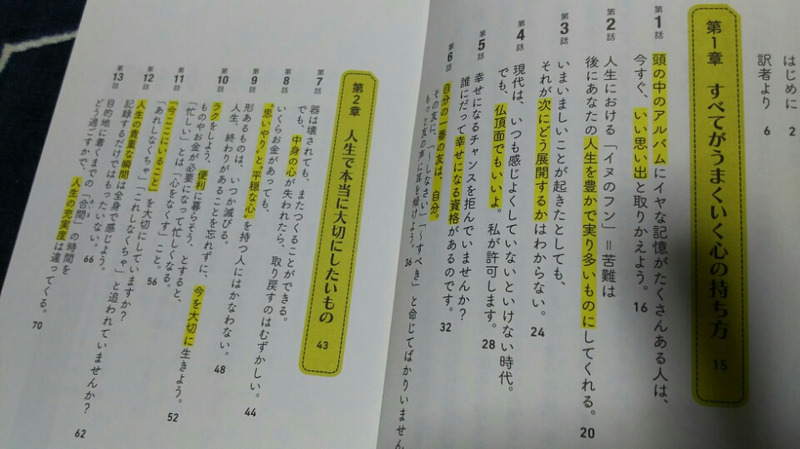 はじめに 2
訳者より 6
第1章 すべてがうまくいく心の持ち方 15
第1話 頭の中のアルバムにイヤな記憶がたくさんある人は、
今すぐ、いい思い出と取りかえよう。 16
第2話 人生における「イヌのフン」＝苦難は
後にあなたの人生を豊かで実り多いものにしてくれる。 20
第3話 いまいましいことが起きたとしても、
それが次にどう展開するかはわからない。 24
第4話 現代は、いつも感じよくしていないといけない時代。
でも、仏頂面でもいいよ。私が許可します。 28
第5話 幸せになるチャンスを拒んでいませんか？
誰にだって幸せになる資格があるのです。 32
第6話 自分の一番の友は、自分。
その友に、「〜しなさい」「〜すべき」と命じてばかりいません
もっと友の声に耳を傾けよう。 36
第2章 人生で本当に大切にしたいもの 43
第7話 器は壊されても、またつくることができる。
でも、中身の心が失われたら、取り戻すのはむずかしい。 44
第8話 いくらお金があっても、
「思いやり」と「平穏な心」を持つ人にはかなわない。 48
第9話 形あるものは、いつか滅びる。
人生、終わりがあることを忘れずに、今を大切に生きよう。 52
第10話 ラクをしよう、便利に暮らそう、とすると、
ものやお金が必要になって忙しくなる。
第11話 「忙しい」とは「心をなくす」こと。
「今ここにいること」を大切にしていますか？ 56
第12話 「あれしなくちゃ」「これしなくちゃ」と追われていませんか？ 62
人生の貴重な瞬間は全身で感じよう。
記録するだけではもったいない。 66
第13話 目的地に着くまでの「合間」の時間を
どう過ごすかで、人生の充実度は違ってくる。 70